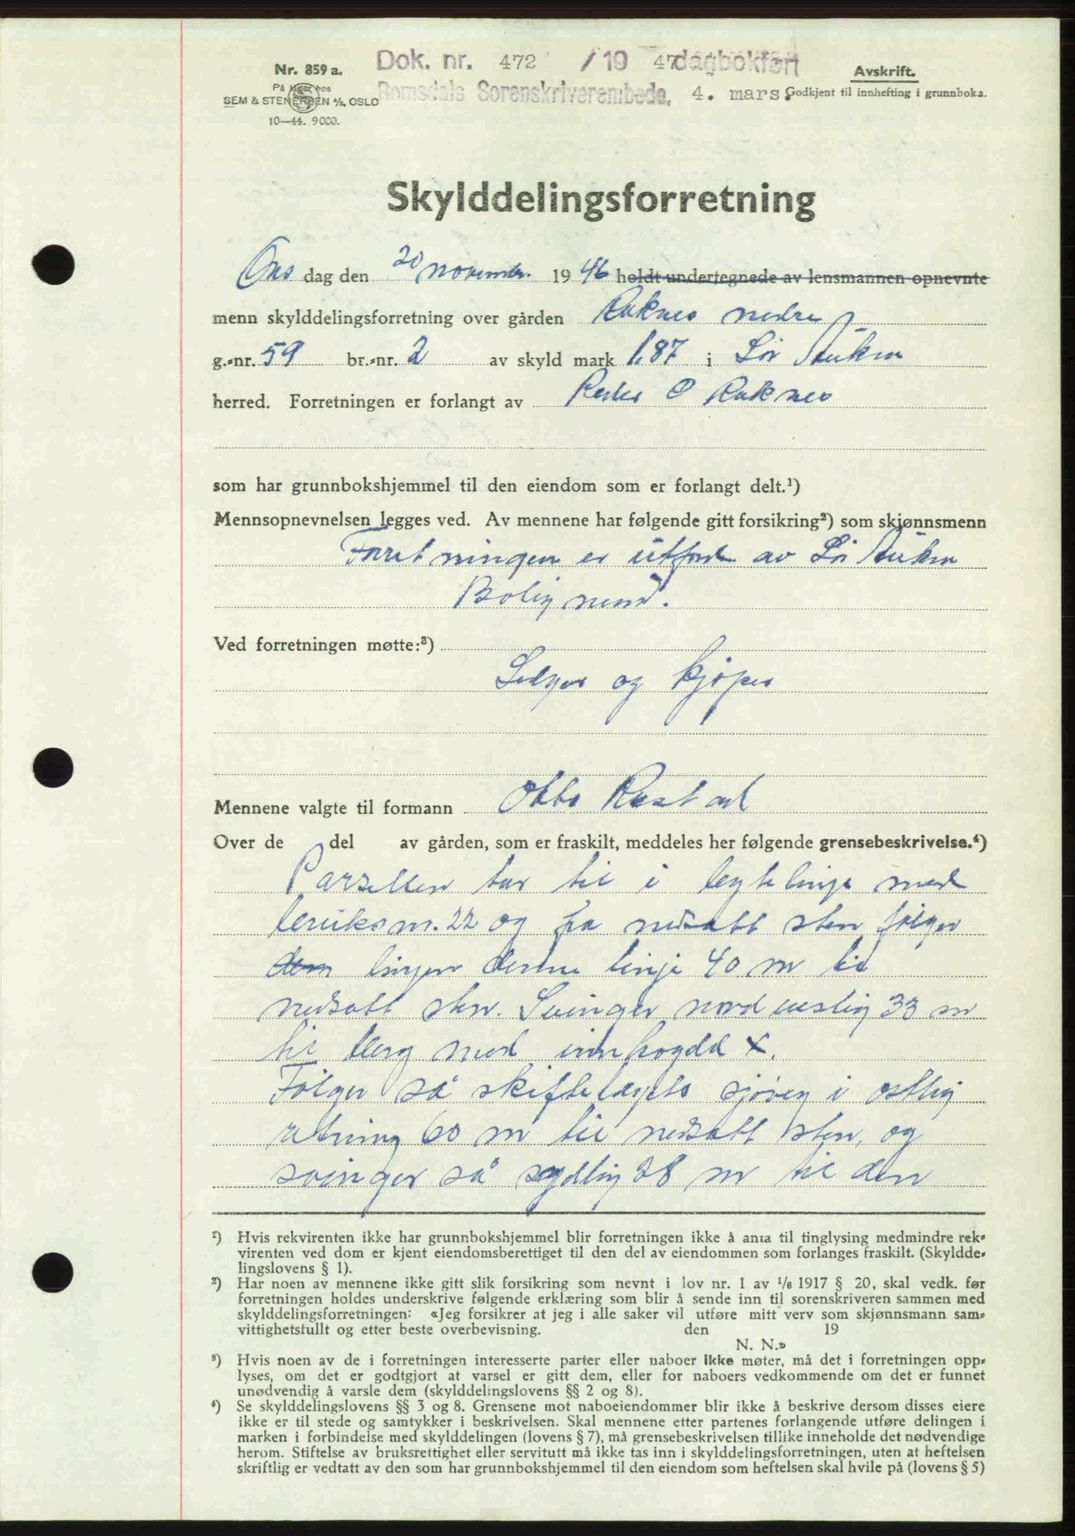 Nr. 859 a.
På lager hos
SEM & STENERSEN A/S, OSLO
10—44. 9000.
Dok. nr. 472 /19 47 dagbokført
Romsdals Sorenskriverembede, 4. mars
Avskrift.
Godkjent til innhefting i grunnboka.
Skylddelingsforretning
Ons dag den 20 november 19 46 holdt undertegnede av lensmannen opnevnte
menn skylddelingsforretning over gården Raknes nedre
g.-nr. 59 br.-nr. 2 av skyld mark 1.87 i Sør Aukra
herred. Forretningen er forlangt av Peder O Raknes
som har grunnbokshjemmel til den eiendom som er forlangt delt.¹)
Mennsopnevnelsen legges ved. Av mennene har følgende gitt forsikring²) som skjønnsmenn
Forretningen er utført av Sør Aukra
Bolig nemd.
Ved forretningen møtte:³)
Selger og kjøper
Mennene valgte til formann Otto Rastad
Over de del av gården, som er fraskilt, meddeles her følgende grensebeskrivelse.⁴)
Parsellen tar til i byttelinje med
bruksnr. 22 og fra nedsatt sten følger
dem linjen denne linje 40 m til
nedsatt sten. Svinger nord vestlig 33 m
til berg med innhogdd x.
Følger så skiftelagets sjøveg i østlig
retning 60 m til nedsatt sten, og
svinger så sydlig 28 m til den
¹) Hvis rekvirenten ikke har grunnbokshjemmel blir forretningen ikke å anta til tinglysing medmindre rek-
virenten ved dom er kjent eiendomsberettiget til den del av eiendommen som forlanges fraskilt. (Skyldde-
lingslovens § 1).
²) Har noen av mennene ikke gitt slik forsikring som nevnt i lov nr. 1 av 1/6 1917 § 20, skal vedk. før
forretningen holdes underskrive følgende erklæring som blir å sende inn til sorenskriveren sammen med
skylddelingsforretningen: «Jeg forsikrer at jeg i alle saker vil utføre mitt verv som skjønnsmann sam-
vittighetsfullt og etter beste overbevisning. den 19
N. N.»
³) Hvis noen av de i forretningen interesserte parter eller naboer ikke møter, må det i forretningen opp-
lyses, om det er godtgjort at varsel er gitt dem, eller for naboers vedkommende om det er funnet
unødvendig å varsle dem (skylddelingslovens §§ 2 og 8).
⁴) Se skylddelingslovens §§ 3 og 8. Grensene mot naboeiendommer blir ikke å beskrive dersom disses eiere
ikke er til stede og samtykker i beskrivelsen. Skal mennene etter partenes forlangende utføre delingen i
marken i forbindelse med skylddelingen (lovens § 7), må grensebeskrivelsen tillike inneholde det nødvendige
herom. Stiftelse av bruksrettighet eller servitutt må ikke tas inn i skylddelingsforretningen, uten at heftelsen
skriftlig er vedtatt av den som har grunnbokshjemmel til den eiendom som heftelsen skal hvile på (lovens § 5)